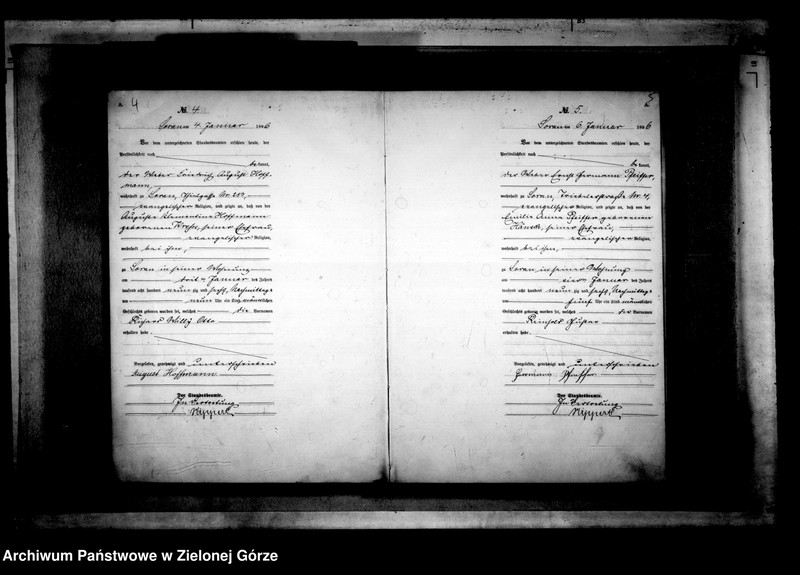 4
№ 4.
Sorau am 4. Januar 1896
Vor dem unterzeichneten Standesbeamten erschien heute, der
Persönlichkeit nach
bekannt,
der Weber Friedrich August Hoff-
mann,
wohnhaft in Sorau, Nr. 209,
evangelischer Religion, und zeigte an, daß von der
Auguste Klementine Hoffmann
geborenen seiner Ehefrau,
evangelischer Religion,
wohnhaft bei ihm,
zu Sorau in seiner Wohnung
am dritten Januar des Jahres
tausend acht hundert neunzig und sechs, Nachmittags
um neun Uhr ein Kind männlichen
Geschlechts geboren worden sei, welches die Vornamen
Richard Willy Otto
erhalten habe.
Vorgelesen, genehmigt und unterschrieben
August Hoffmann
Der Standesbeamte.
In Vertretung
5
№ 5.
Sorau am 6. Januar 1896
Vor dem unterzeichneten Standesbeamten erschien heute, der
Persönlichkeit nach
bekannt,
der Weber Ernst Hermann Pfeiffer,
wohnhaft in Sorau, Triebelerstraße Nr. 4,
evangelischer Religion, und zeigte an, daß von der
Emilie Anna Pfeiffer geborenen
seiner Ehefrau,
evangelischer Religion,
wohnhaft bei ihm,
zu Sorau in seiner Wohnung
am vierten Januar des Jahres
tausend acht hundert neunzig und sechs, Nachmittags
um fünf Uhr ein Kind männlichen
Geschlechts geboren worden sei, welches die Vornamen
Reinhold Gustav
erhalten habe.
Vorgelesen, genehmigt und unterschrieben
Hermann Pfeiffer
Der Standesbeamte.
In Vertretung
Archiwum Państwowe w Zielonej Górze